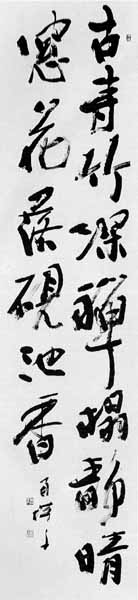 古寺竹深禅榻静晴
窓花落硯池香